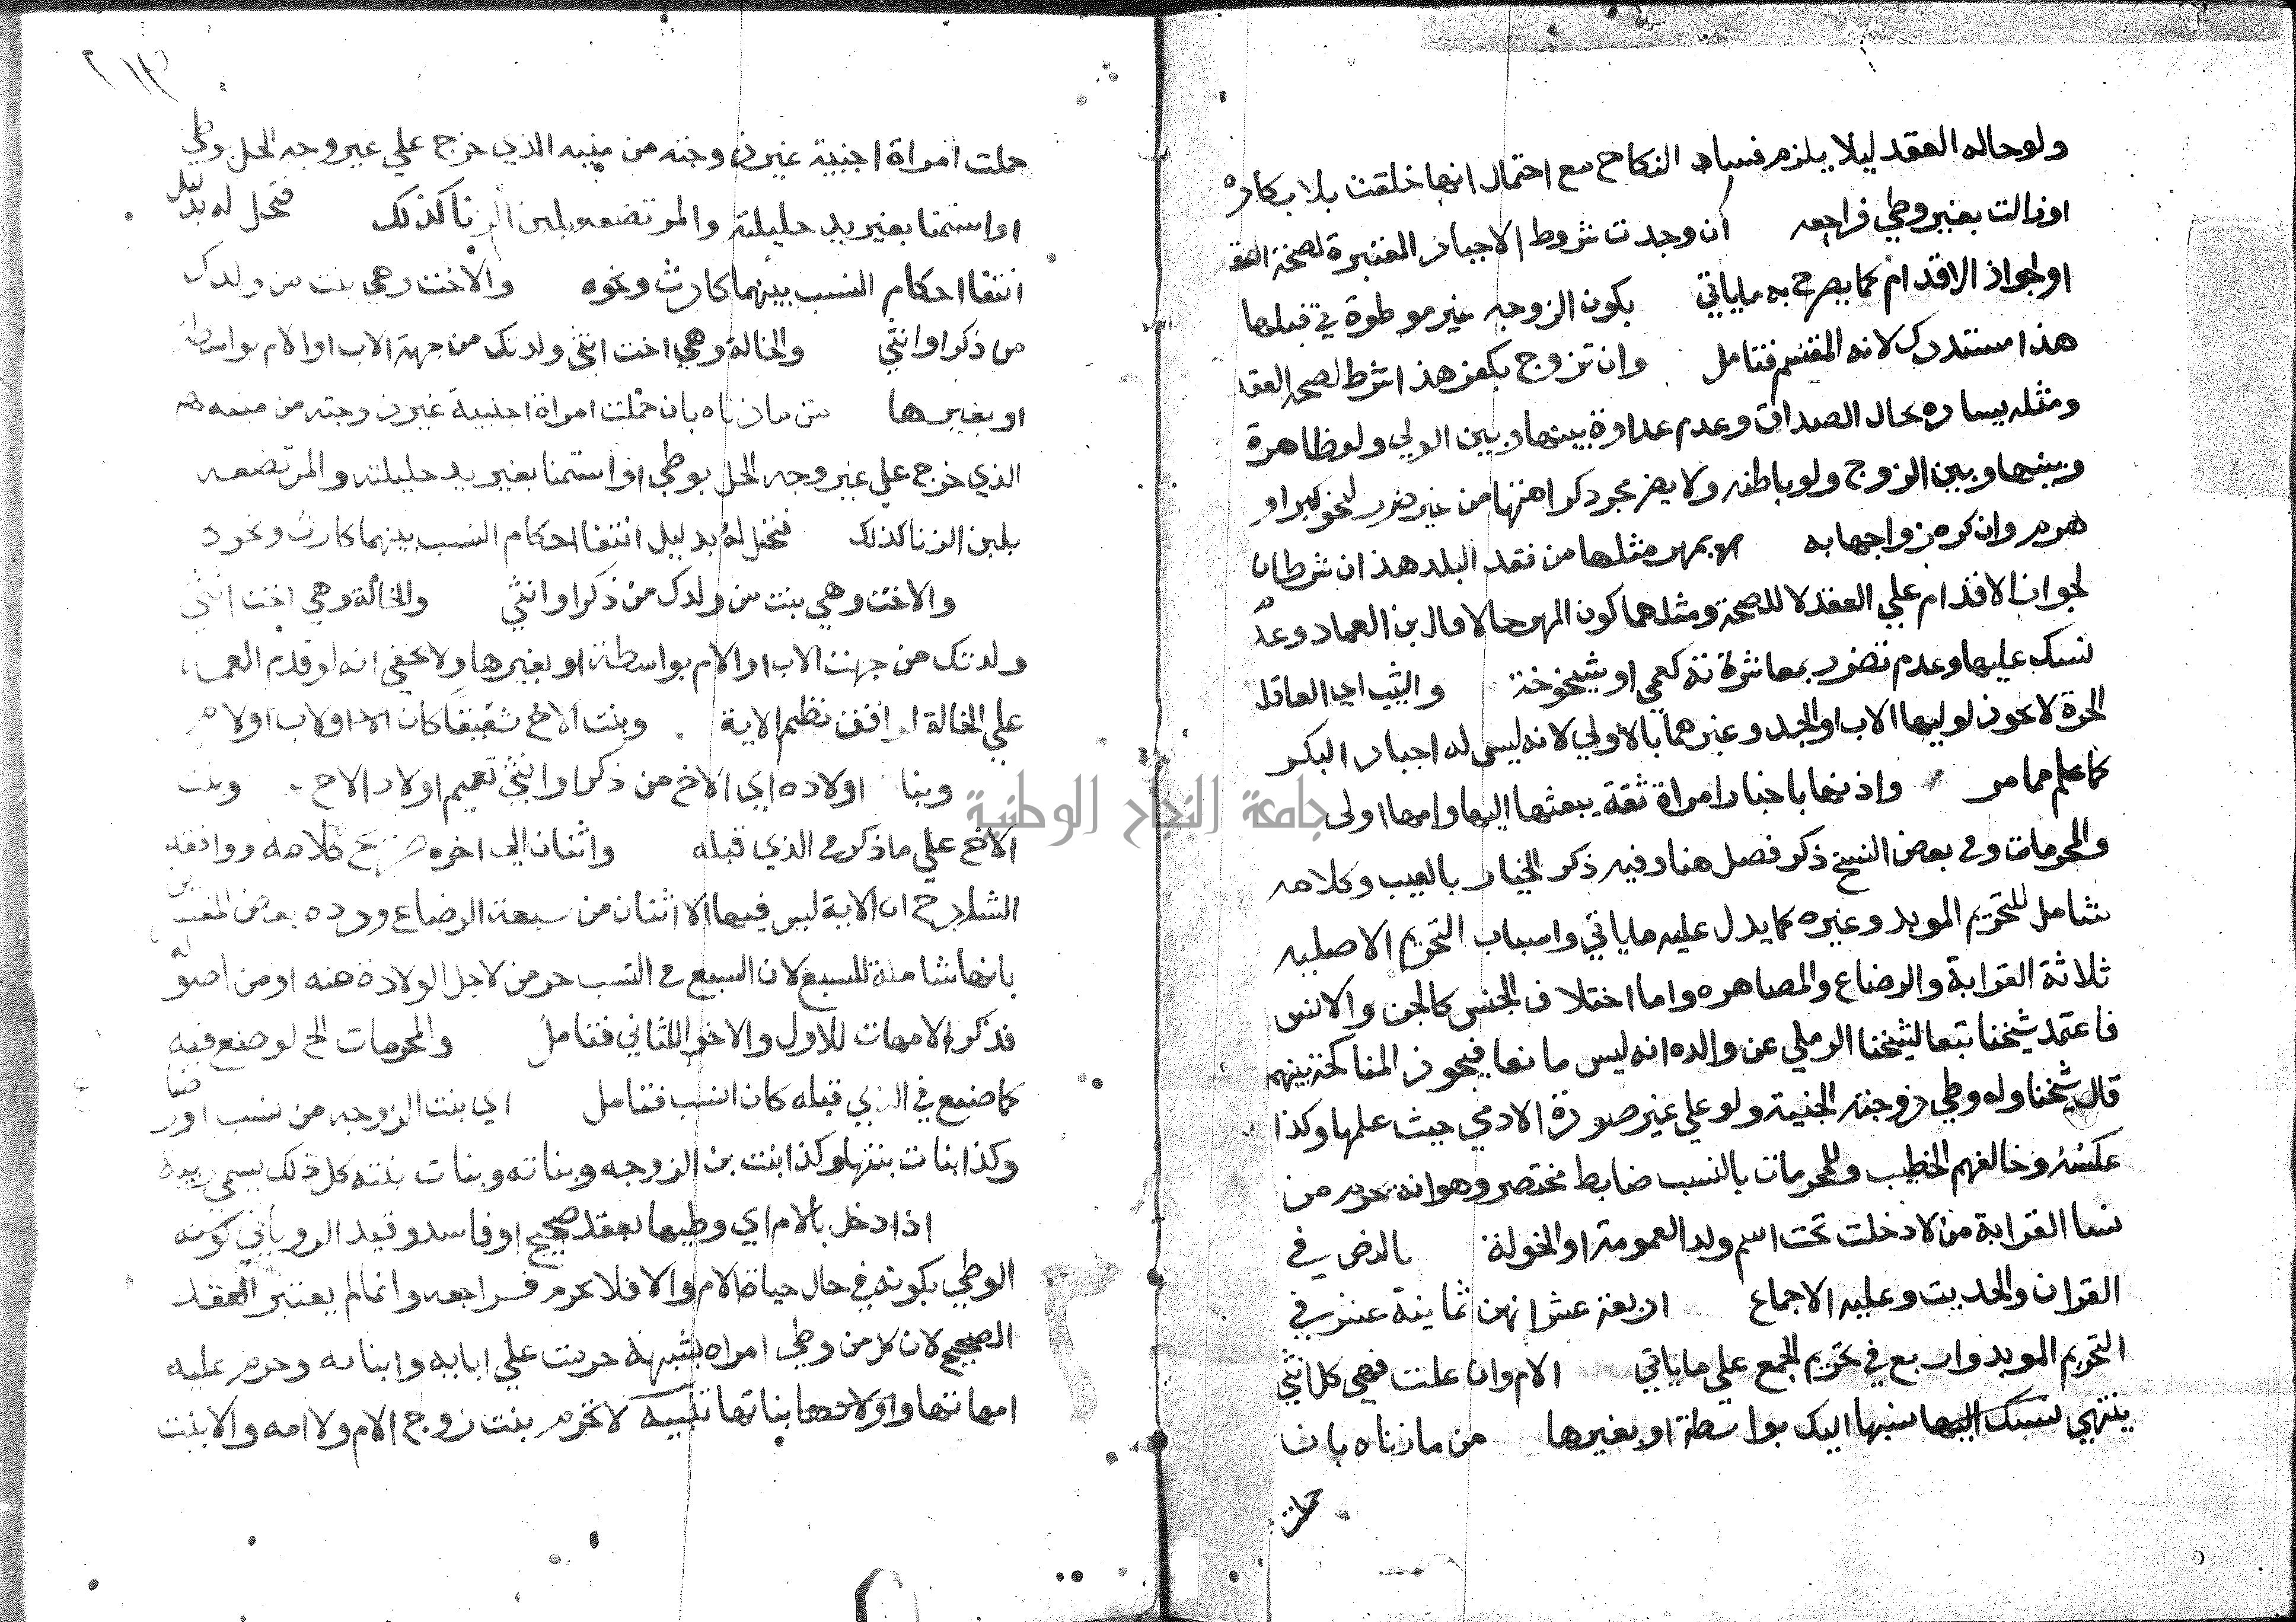 ولو حاله العقد ليلا يلزم فساد النكاح مع احتمال انها خلقت بلا بكاره
او زالت بغير وطي فراجعه ان وجدت شروط الاجبار المعتبرة لصحة العقد
او لجواز الاقدام كما يصرح به ماياتي بكون الزوجه غير موطوة في قبلها
هذا مستدرك لانه المقسم فتامل وان تزوج بكفر هذا شرط لصحة العقد
ومثله يساره بحال الصداق وعدم عداوة بينها وبين الولي ولو ظاهرة
وبينها وبين الزوج ولو باطنه ولا يضر مجرد كراهتها من غير ضرر لنحو كبر او
هرم وان كره زواجها به بمهر مثلها من نقد البلد هذان شرطان
لجواز الاقدام علي العقد لا للصحة ومثلهما كون المهر حالا قال بن العماد وعدم
نسك عليها وعدم تضرر بمعاشرته كعمي او شيخوخة والثيب اي العاقلة
الحرة لا يجوز لوليها الاب او الجد وغيرهما بالاولي لانه ليس له اجبار البكر
كما علم مما مر واذنها باخبار امراة ثقة يبعثها اليها وامها اولى
والمحرمات وفي بعض النسخ ذكر فصل هنا وفيه ذكر الخيار بالعيب وكلامه
شامل للتحريم الموبد وغيره كما يدل عليه ماياتي واسباب التحريم الاصليه
ثلاثة القرابة والرضاع والمصاهره واما اختلاف الجنس كالجن والانس
فاعتمد شيخنا تبعا لشيخنا الرملي عن والده انه ليس مانعا فيجوز المناكحة بينهم
قال شيخنا وله وطي زوجته الجنية ولو علي غير صورة الادمي حيث علمها وكذا
عكسه وخالفهم الخطيب وللمحرمات بالنسب ضابط مختصر وهو انه يحرم من
نسا القرابة من لا دخلت تحت اسم ولد العمومة او الخولة بالنص في
القران والحديث وعليه الاجماع اربعة عشر انهن ثمانية عشر في
التحريم الموبد واربع في تحريم الجمع علي ماياتي الام وان علت فهي كل انثي
ينتهي نسبك اليها نسبها اليك بواسطة او بغيرها من ما زناه بان
حملت
٢١٣
حملت امراة اجنبية غير زوجته من منيه الذي خرج علي غير وجه الحل بوطي
او استمنا بغير يد حليلته والمرتضعه بلبن الزنا كذلك فتحل له بدليل
انتفا احكام النسب بينهما كارث ونحوه والاخت وهي بنت من ولدك
من ذكر او انثي والخالة وهي اخت انثي ولدتك من جهة الاب او الام بواسطة
او بغيرها من ما زناه بان حملت امراة اجنبية غير زوجته من منيه
الذي خرج علي غير وجه الحل بوطي او استمنا بغير يد حليلته والمرتضعه
بلبن الزنا كذلك فتحل له بدليل انتفا احكام النسب بينهما كارث ونحوه
والاخت وهي بنت من ولدك من ذكر او انثي والخالة وهي اخت انثي
ولدتك من جهت الاب او الام بواسطة او بغيرها ولا يخفي انه لو قدم العمة
علي الخالة لوافق نظم الاية وبنت الاخ شقيقا كان او لاب او لام
وبنا اولاده اي الاخ من ذكر او انثي تعميم اولاد الاخ وبنت
الاخ علي ما ذكر في الذي قبله واثنان الي اخره صريح كلامه ووافقه
الشارح ان الاية ليس فيها الا اثنان من سبعة الرضاع ورده بعض المفسرين
بانها شاملة للسبع لان السبع في النسب حرمن لاجل الولادة منه او من اصوله
فذكر الامهات للاول والاخوات للثاني فتامل والمحرمات الخ لو صنع فيه
كما صنع في الذي قبله كان انسب فتامل اي بنت الزوجه من نسب او رضاع
وكذا بنات بنتها وكذا بنت بن الزوجه وبناته وبنات بنته كل ذلك يسمي ربيبة
اذا دخل بالام اي وطيها بعقد صحيح او فاسد وقيد الروياني كونه
الوطي بكونه في حال حياة الام والا فلا يحرم فراجعه وانما لم يعتبر العقد
الصحيح لان كل من وطي امراه بشبهة حرمت علي ابايه وابنايه وحرم عليه
امهاتها واولادها بناتها تنبيه لا تحرم بنت زوج الام ولا امه والا بنت
جامعة النجاح الوطنية